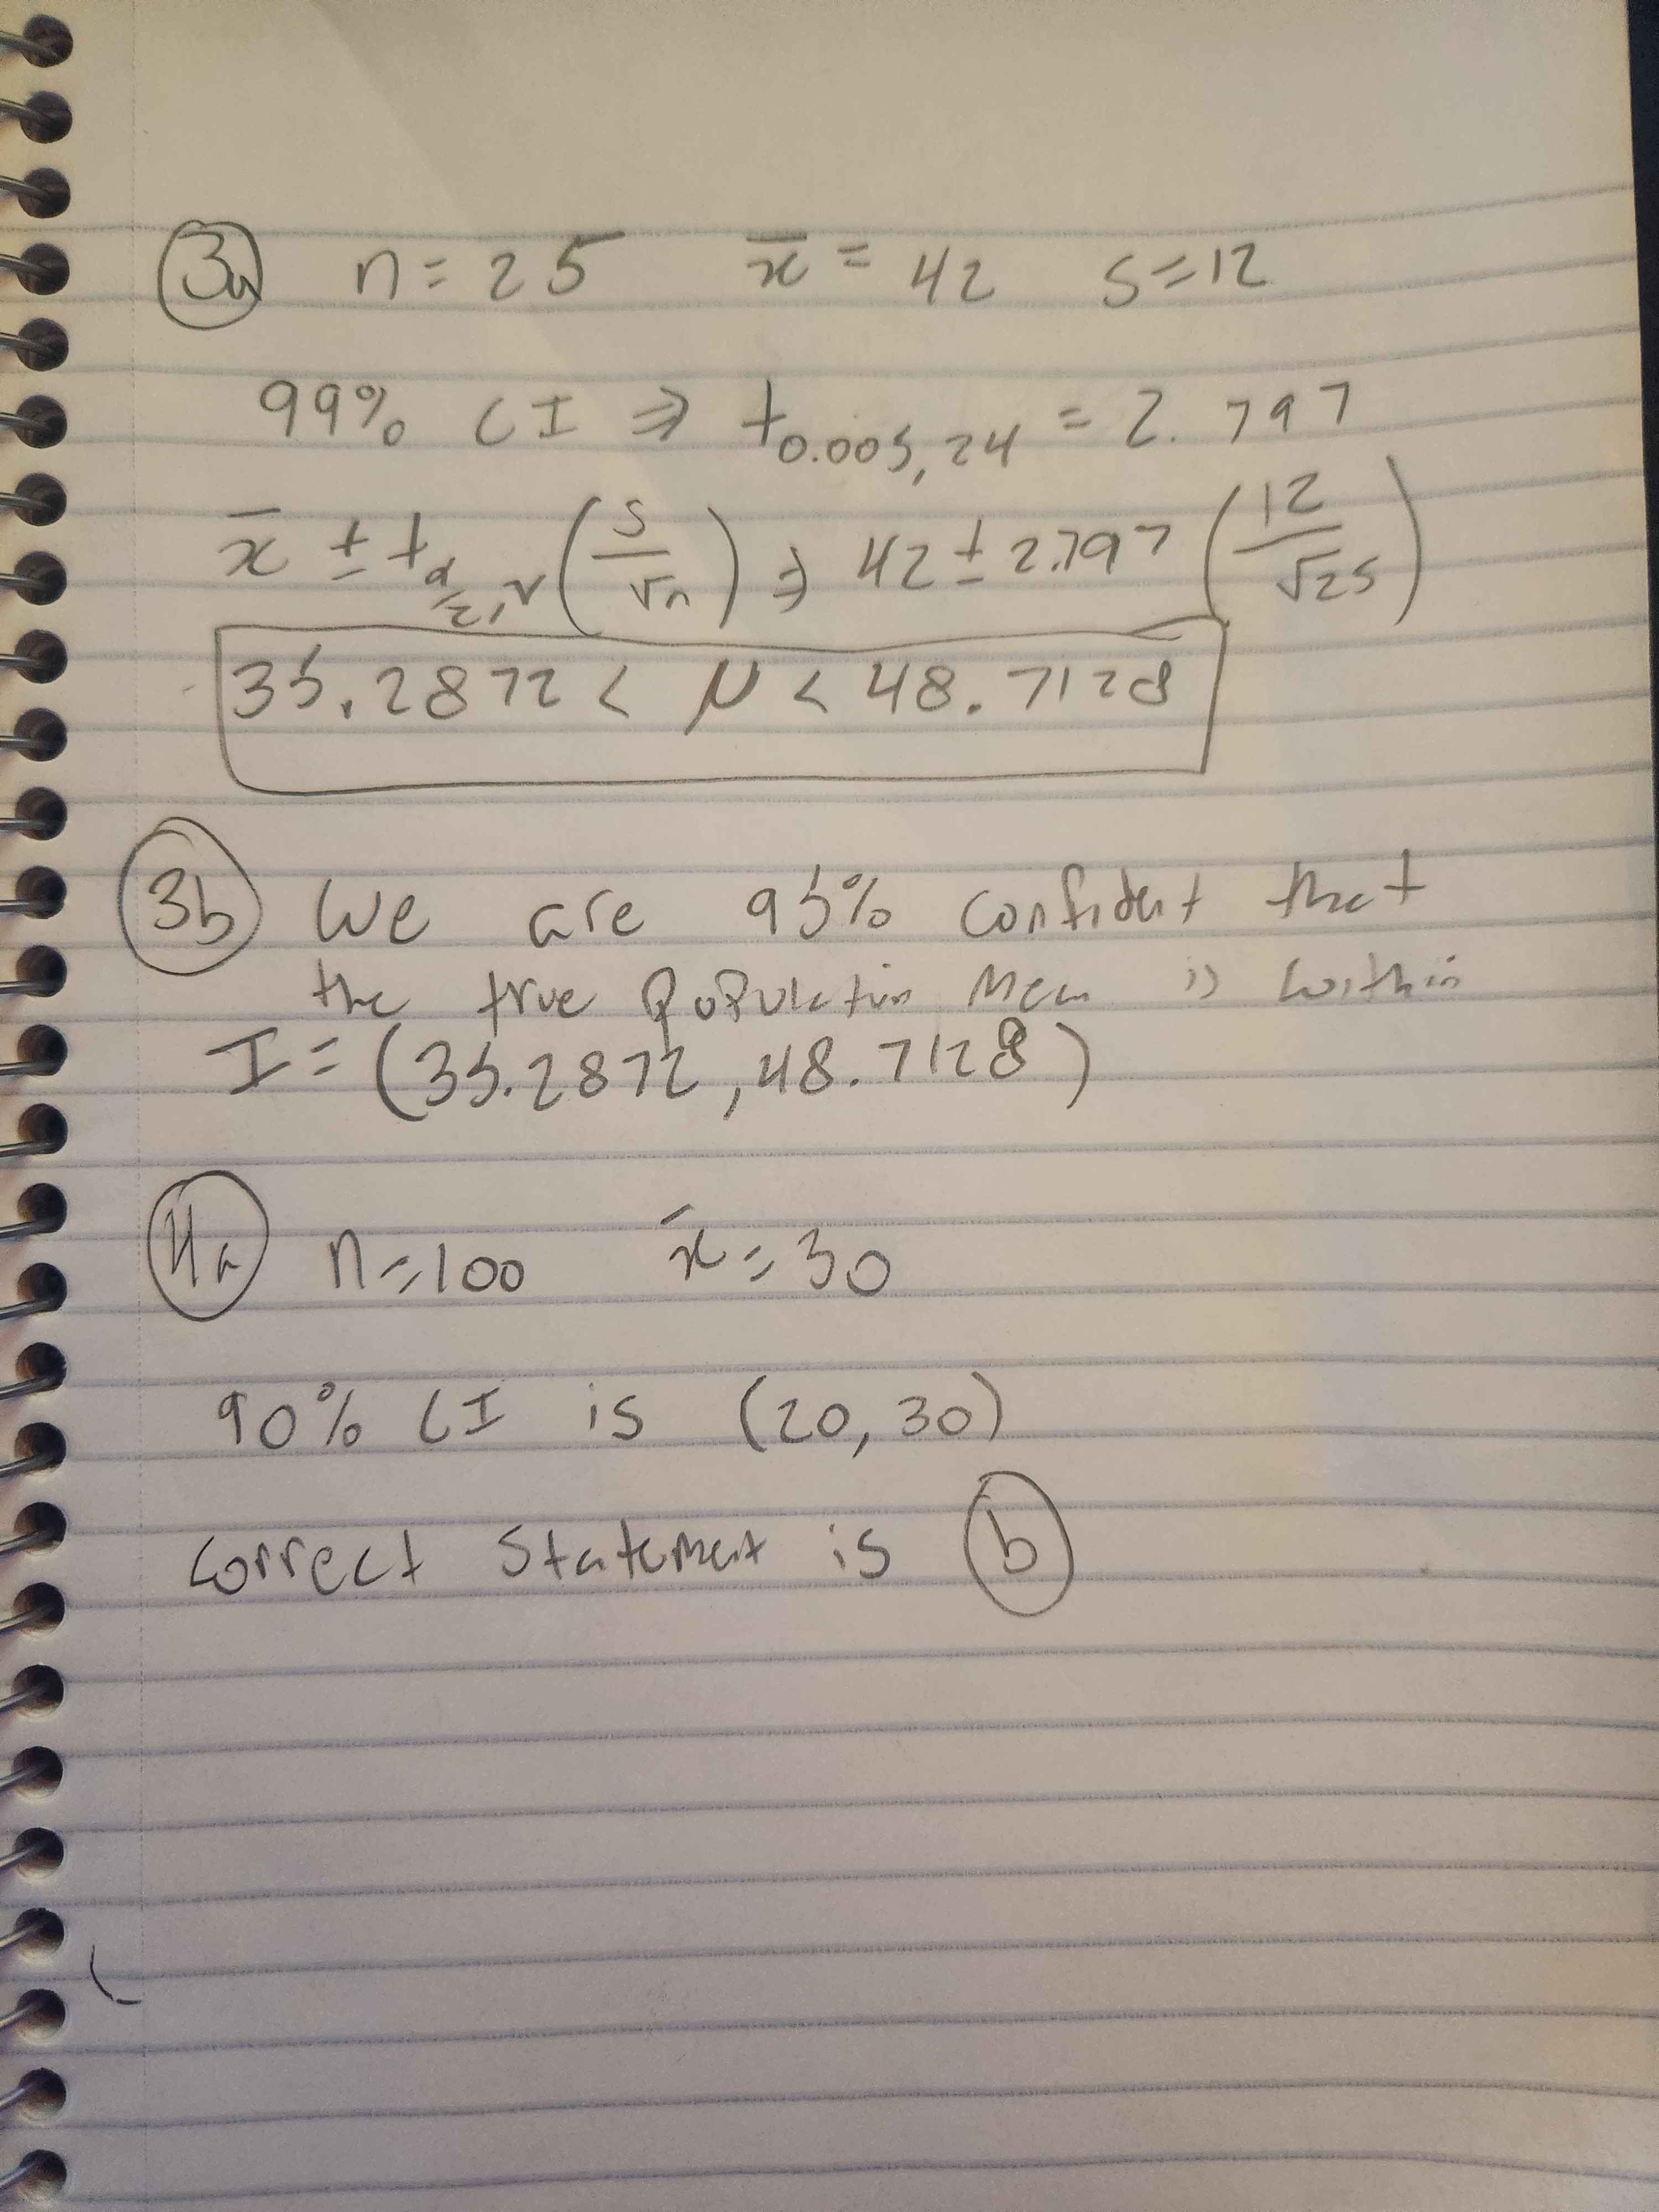 3a n = 25 x̄ = 42 s = 12
99% CI ⇒ t0.005, 24 = 2.797
x̄ ± tα/2, ν (s/√n) ⇒ 42 ± 2.797 (12/√25)
35.2872 < μ < 48.7128
3b We are 95% confident that
the true population mean is within
I = (35.2872, 48.7128)
4a n = 100 x̄ = 30
90% CI is (20, 30)
Correct statement is b